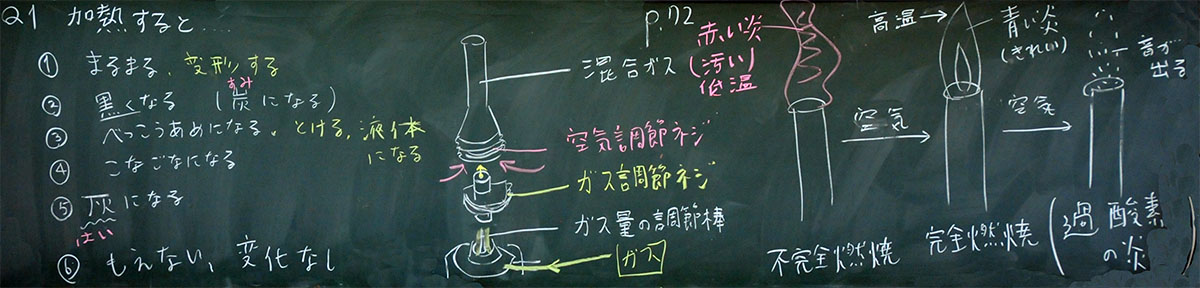 Q1 加熱すると……
① まるまる、変形する
② 黒くなる (炭になる)
すみ
③ べっこうあめになる、とける、液体
になる
④ こなごなになる
⑤ 灰になる
はい
⑥ もえない、変化なし
混合ガス
空気調節ネジ
ガス調節ネジ
ガス量の調節棒
ガス
p.72
赤い炎
(汚い)
低温
空気
不完全燃焼
高温→
青い炎
(きれい)
空気
完全燃焼
音が
出る
(過酸素
の炎)